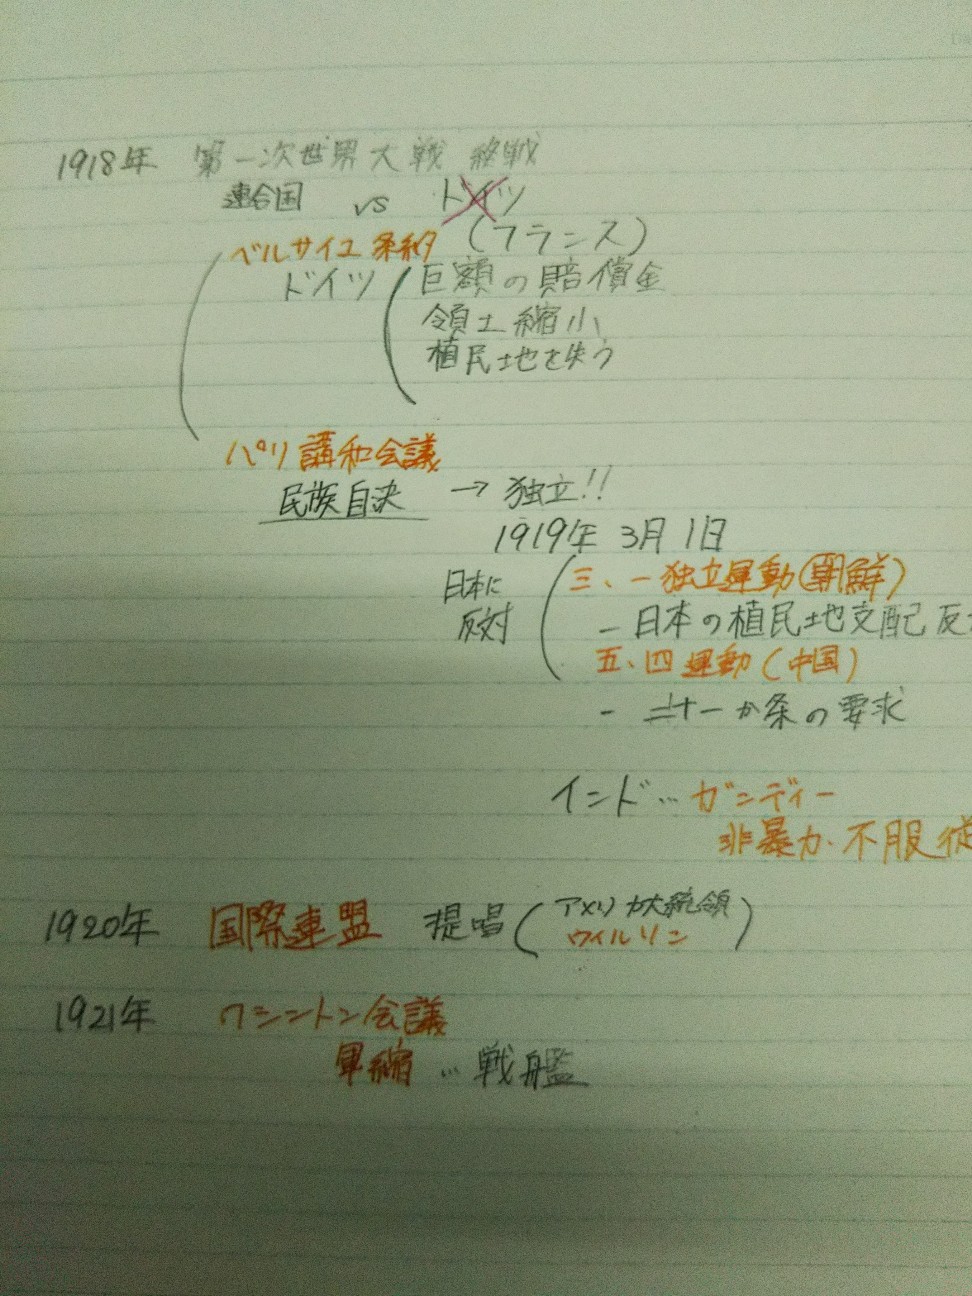 1918年 第一次世界大戦 終戦
連合国 vs ドイツ
ベルサイユ条約 (フランス)
ドイツ 巨額の賠償金
領土縮小
植民地を失う
パリ講和会議
民族自決 → 独立!!
1919年 3月1日
日本に反対
三、一独立運動(朝鮮)
- 日本の植民地支配反
五、四運動(中国)
- 二十一か条の要求
インド… ガンディー
非暴力・不服従
1920年 国際連盟 提唱(アメリカ大統領
ウィルソン)
1921年 ワシントン会議
軍縮 … 戦艦